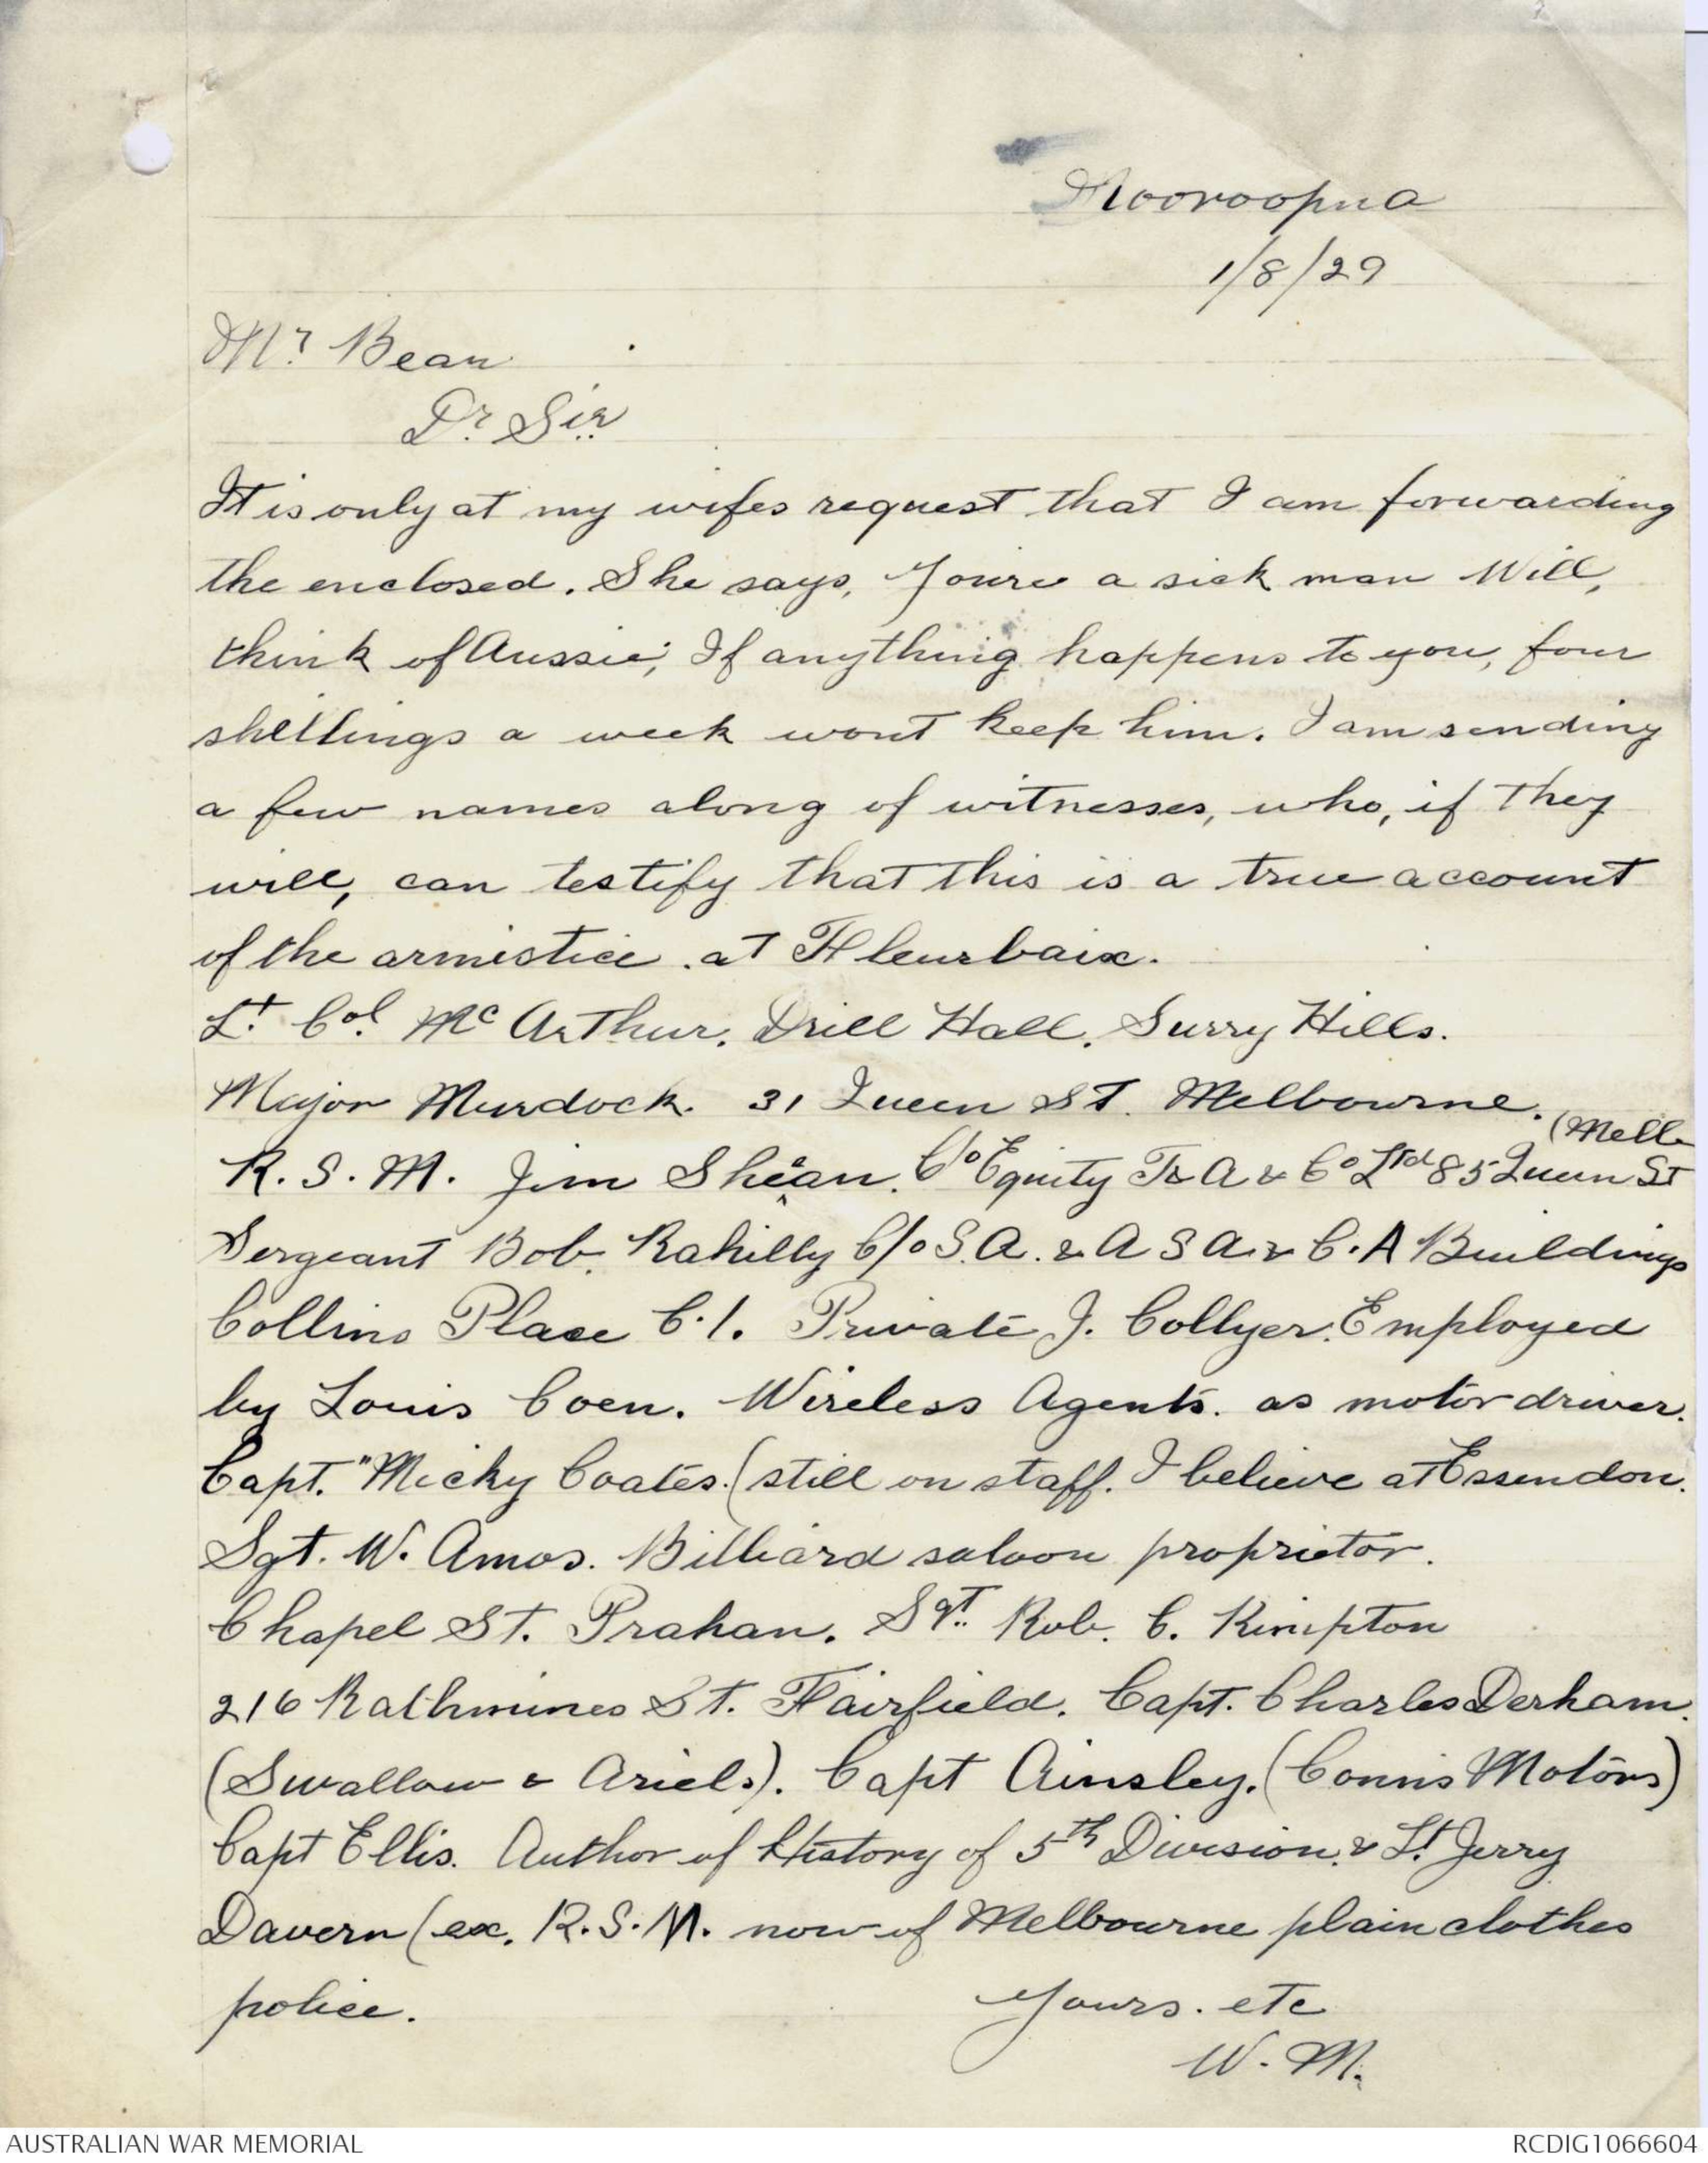 Mooroopna
1/8/29
Mr. Bean
Dr. Sir
It is only at my wifes request that I am forwarding
the enclosed. She says, Youre a sick man Will,
think of Aussie; If anything happens to you, four
shillings a week wont keep him. I am sending
a few names along of witnesses, who, if they
will, can testify that this is a true account
of the armistice at Fleurbaix.
Lt. Col. McArthur. Drill Hall. Surry Hills.
Major Murdock. 31 Queen St. Melbourne.
R.S.M. Jim Shean. C/o Equity Tr A & Co Ltd 85 Queen St (Melb
Sergeant Bob. Rahilly C/o S.A. & A S A. & C. A Buildings
Collins Place C.1. Private J. Collyer. Employed
by Louis Coen. Wireless Agents. as motor driver.
Capt. "Micky Coates. (still on staff. I believe at Essendon.
Sgt. W. Amos. Billiard saloon proprietor.
Chapel St. Prahan. Sgt. Rob. C. Kimpton
216 Rathmines St. Fairfield. Capt. Charles Derham.
(Swallow & Ariels). Capt Ainsley. (Connis Motors)
Capt Ellis. Author of History of 5th Division. & Lt. Jerry
Davern (ex. R.S.M. now of Melbourne plain clothes
police.
Yours. etc
W. M.
AUSTRALIAN WAR MEMORIAL
RCDIG1066604